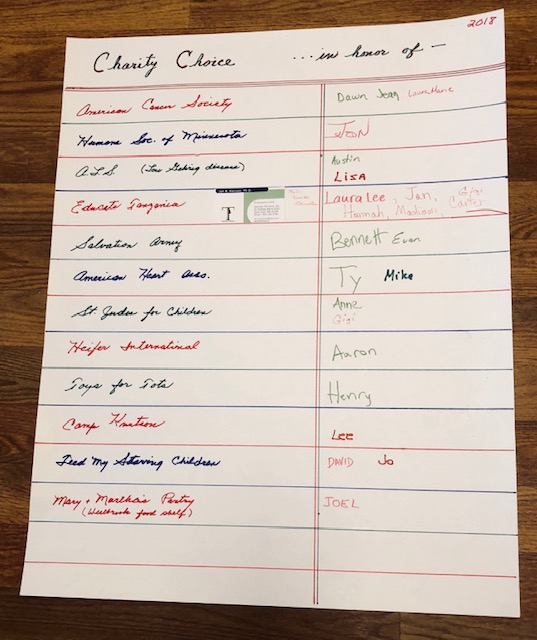 2018
Charity Choice ...in honor of —
American Cancer Society Dawn Jean LauraMarie
Humane Soc. of Minnesota JEON
A.L.S. (Lou Gehrig disease) Austin
LISA
Educate Tanzania T Laura Lee, Jan, Gigi
Hannah, Madison, Carter
Salvation Army Bennett Evan
American Heart Asso. Ty Mike
St. Judes for Children Anne
Gigi
Heifer International Aaron
Toys for Tots Henry
Camp Knutson Lee
Feed My Starving Children DAVID Jo
Mary + Martha's Pantry JOEL
(Westbrook food shelf)